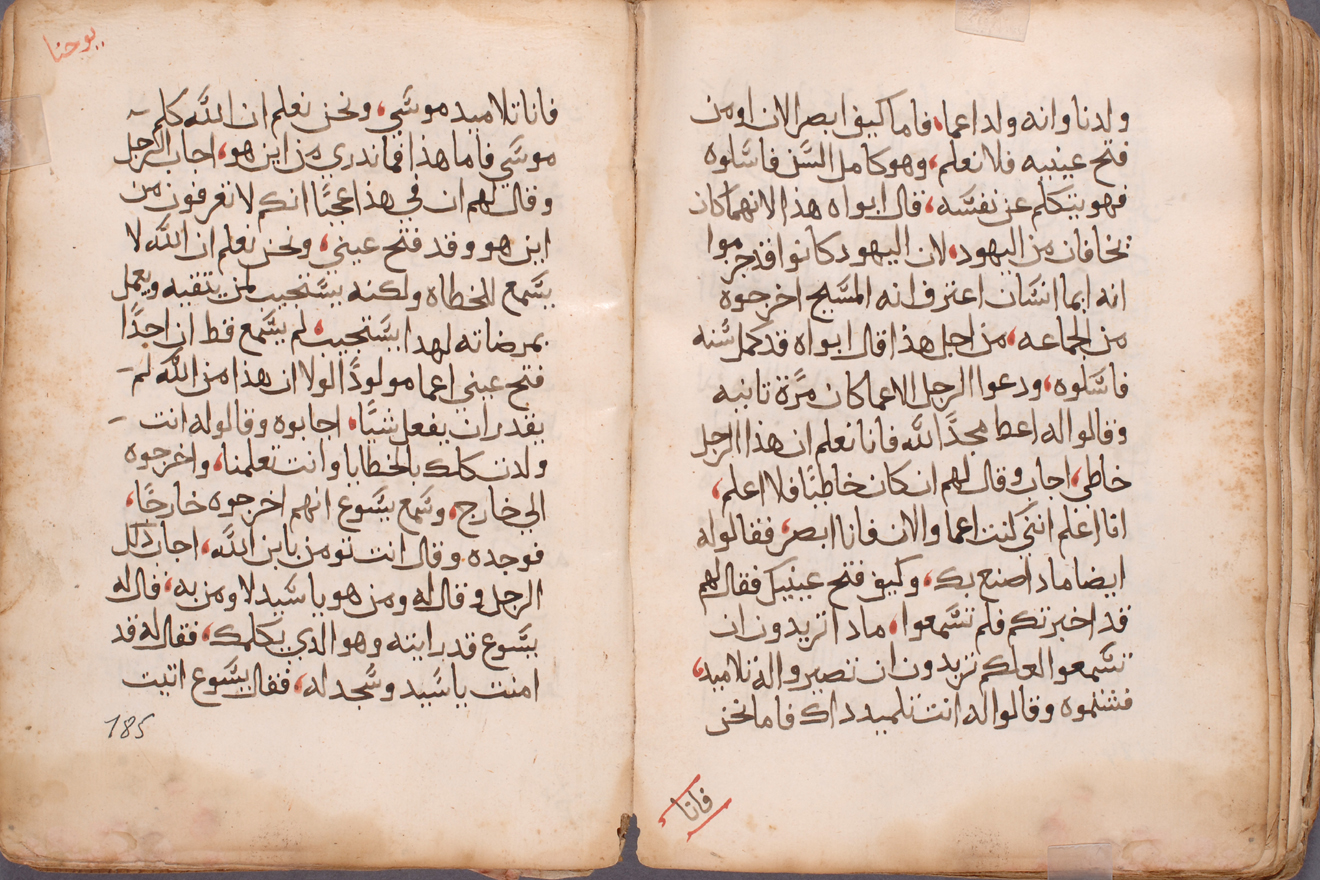 ولدنا وانه ولد اعما، فاما كيف ابصر الان او من
فتح عينيه فلا نعلم، وهو كامل السن فاسلوه
فهو يتكلم عن نفسه، قال ابواه هذا لانهما كان
يخافان من اليهود، لان اليهود كانوا قد جرموا
انه ايما انسان اعترف انه المسيح اخرجوه
من الجماعه، من اجل هذا قال ابواه قد كمل سنه
فاسلوه، ودعوا الرجل الاعما كان مرة تانيه
وقالوا له اعط مجدًا لله فانا نعلم ان هذا الرجل
خاطي، اجاب وقال لهم ان كان خاطيًا فلا اعلم،
انا اعلم انني كنت اعما والان فانا ابصر، فقالوا له
ايضا مادا صنع بك، وكيف فتح عينيك فقال لهم
قد اخبرتكم فلم تسمعوا، مادا تريدون ان
تسمعوا لعلكم تريدون ان تصيروا له تلاميد،
فشتموه وقالوا له انت تلميد داك فاما نحن
فانا
يوحنا
فانا تلاميد موسي، ونحن نعلم ان الله كلم
موسي فاما هذا فما ندري من اين هو، اجاب الرجل
وقال لهم ان في هذا عجبًا انكم لا تعرفون من
اين هو وقد فتح عيني، ونحن نعلم ان الله لا
يسمع للخطاه ولكنه يستجيب لمن يتقيه ويعمل
بمرضاته لهدا يستجيب، لم يسمع قط ان احدًا
فتح عيني اعما مولودًا لولا ان هذا من الله لم
يقدر ان يفعل شيًا، اجابوه وقالوا له انت
ولدت كلك بالخطايا وانت تعلمنا، واخرجوه
الي خارج، وسمع يسوع انهم اخرجوه خارجًا،
فوجده وقال انت تومن بابن الله، اجاب ذلك
الرجل وقال له ومن هو يا سيد لاومن به، قال له
يسوع قد رايته وهو الذي يكلمك، فقال له قد
امنت يا سيد وسجد له، فقال يسوع اتيت
185